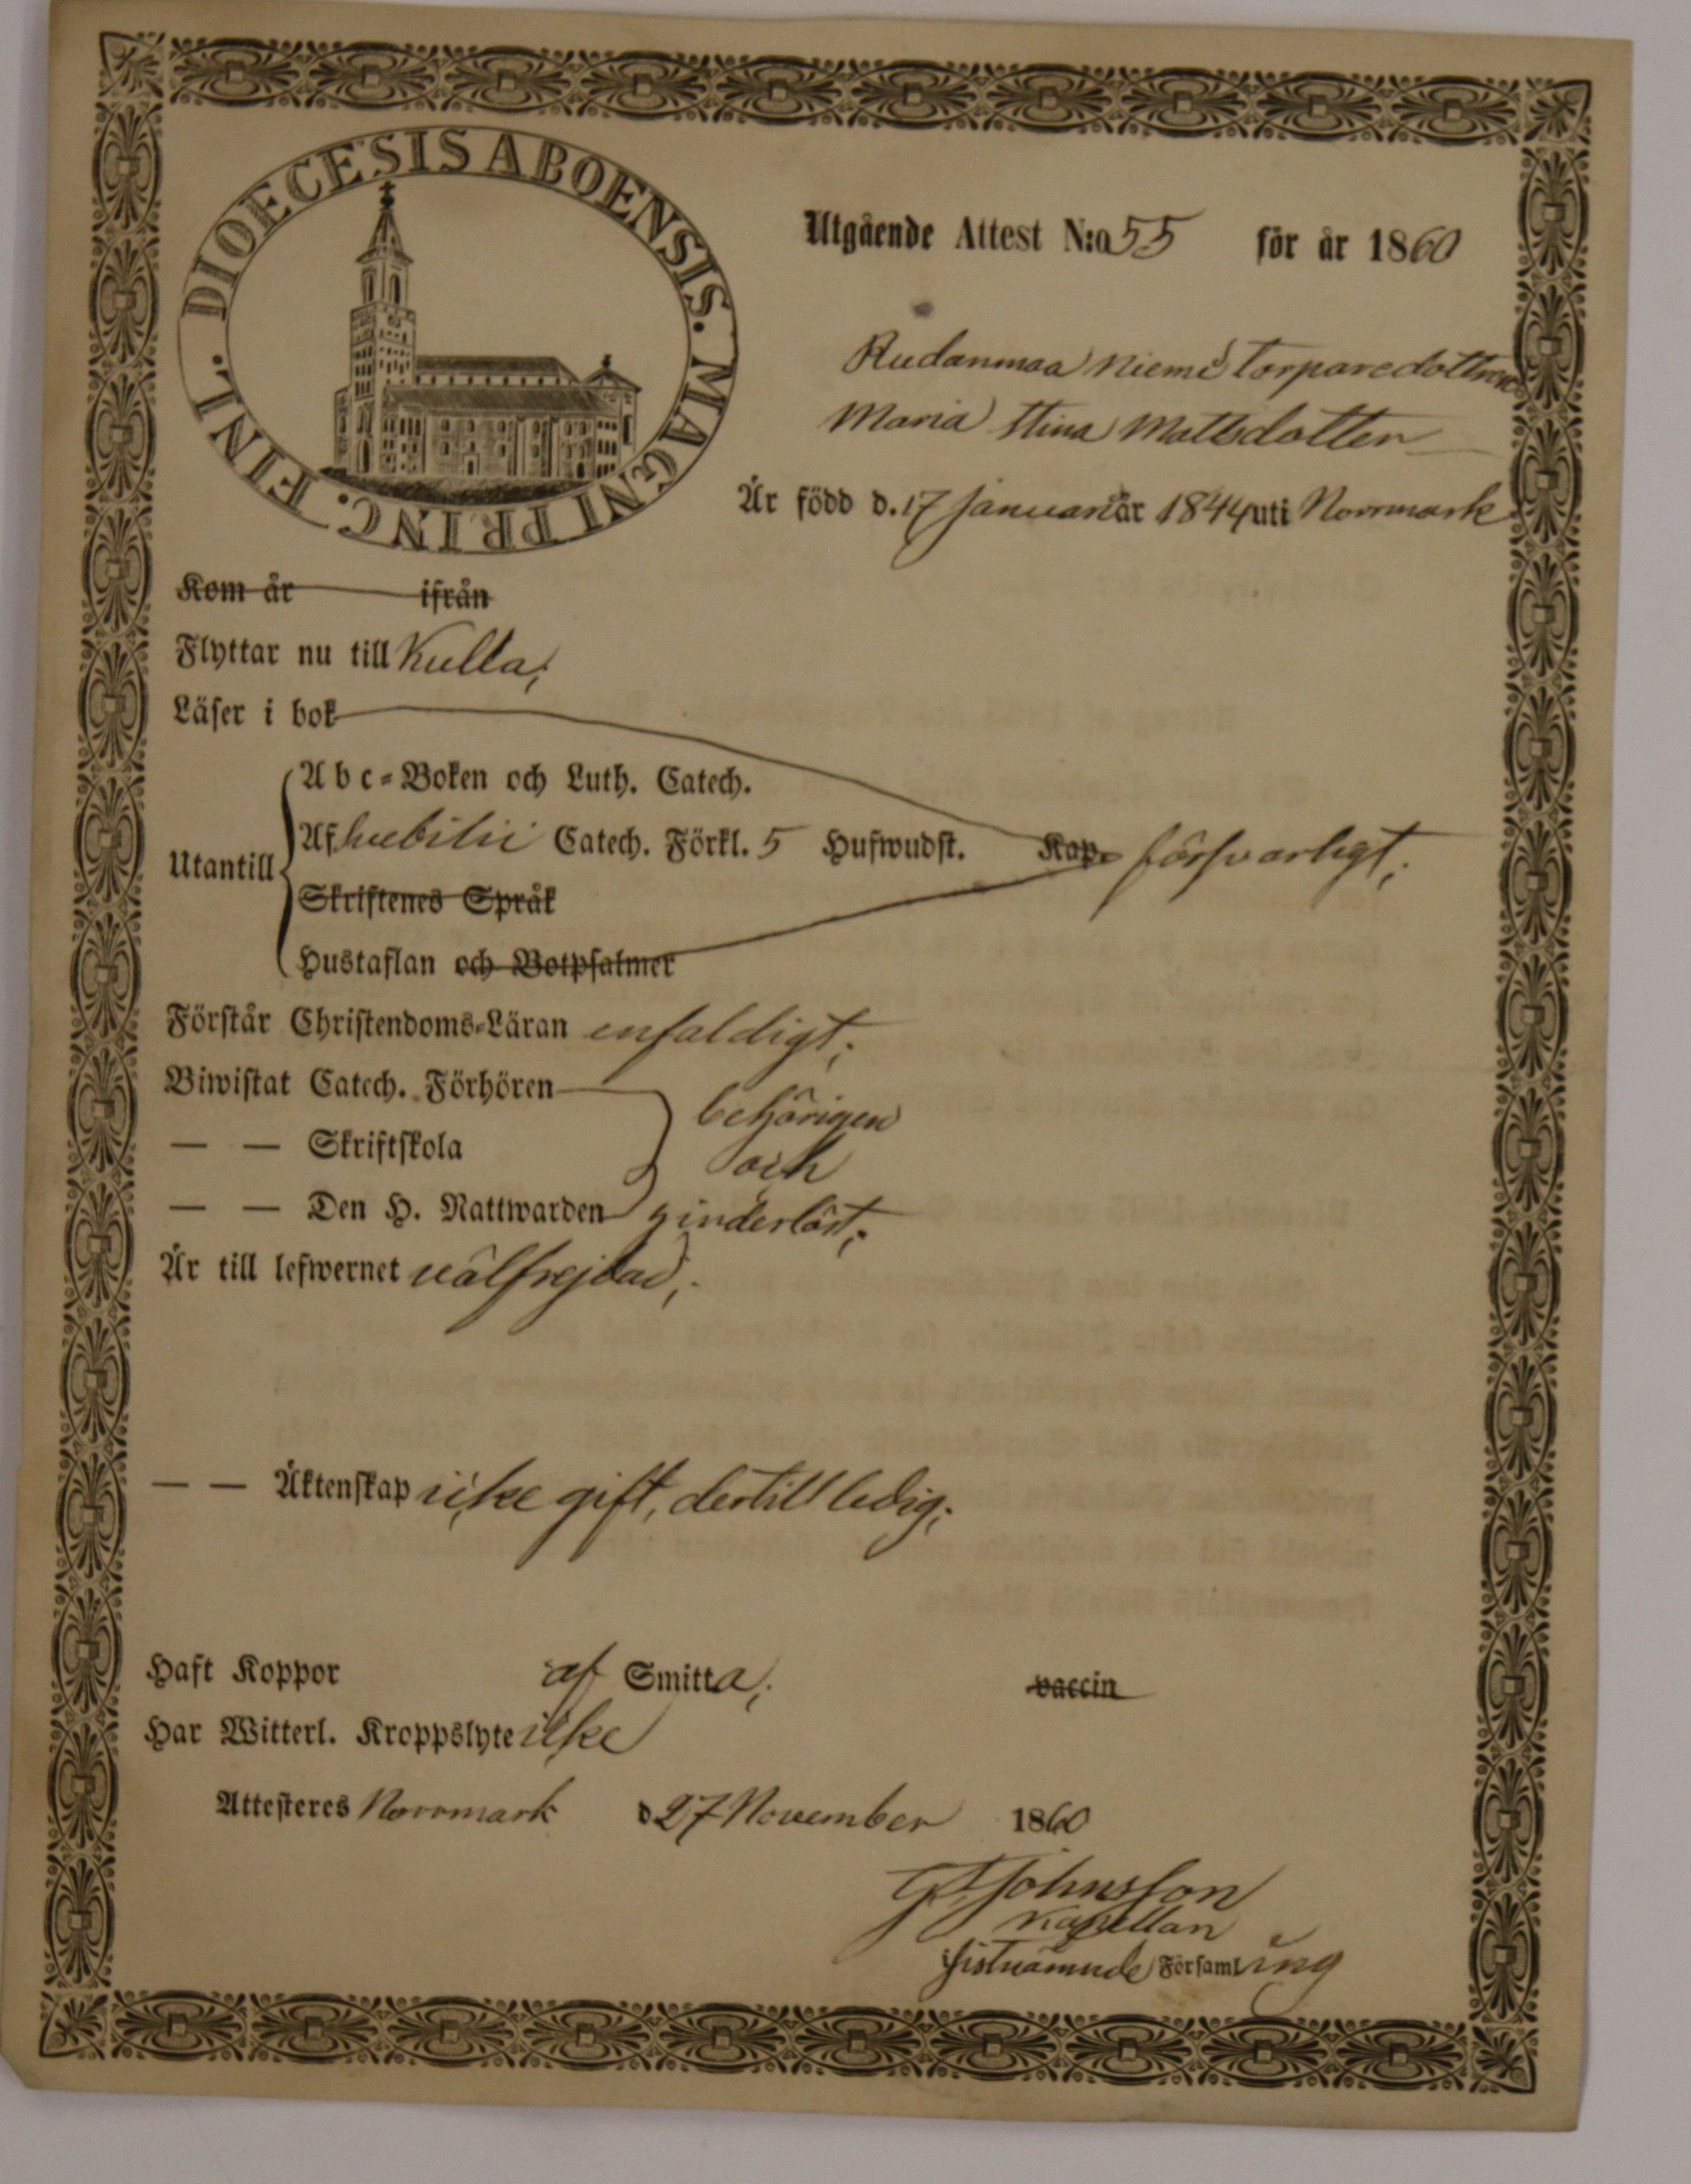 DIOECESIS ABOENSIS. MAGNI PRINC. FINL.
Utgående Attest N:o 55 för år 1860
Rudanmaa Niemi Torparedottren
Maria Stina Mattsdotter
Är född d. 17 Januari år 1844 uti Norrmark
Kom år ifrån
Flyttar nu till Kulla;
Läser i bok
Abc-Boken och Luth. Catech.
Utantill Af Svebilii Catech. Förkl. 5 Hufwudst. Kap. försvarligt;
Skriftenes Språk
Hustaflan och Botpsalmer
Förstår Christendoms-Läran enfaldigt;
Biwistat Catech. Förhören behörigen
— — Skriftskola och
— — Den H. Nattwarden hinderlöst;
Är till lefwernet välfrejdad;
— — Äktenskap icke gift, dertill ledig;
Haft Koppor af Smitta; vaccin
Har Witterl. Kroppslyte icke
Attesteres Norrmark d 27 November 1860
Johnsson
Kapellan
i sistnämnde Församling